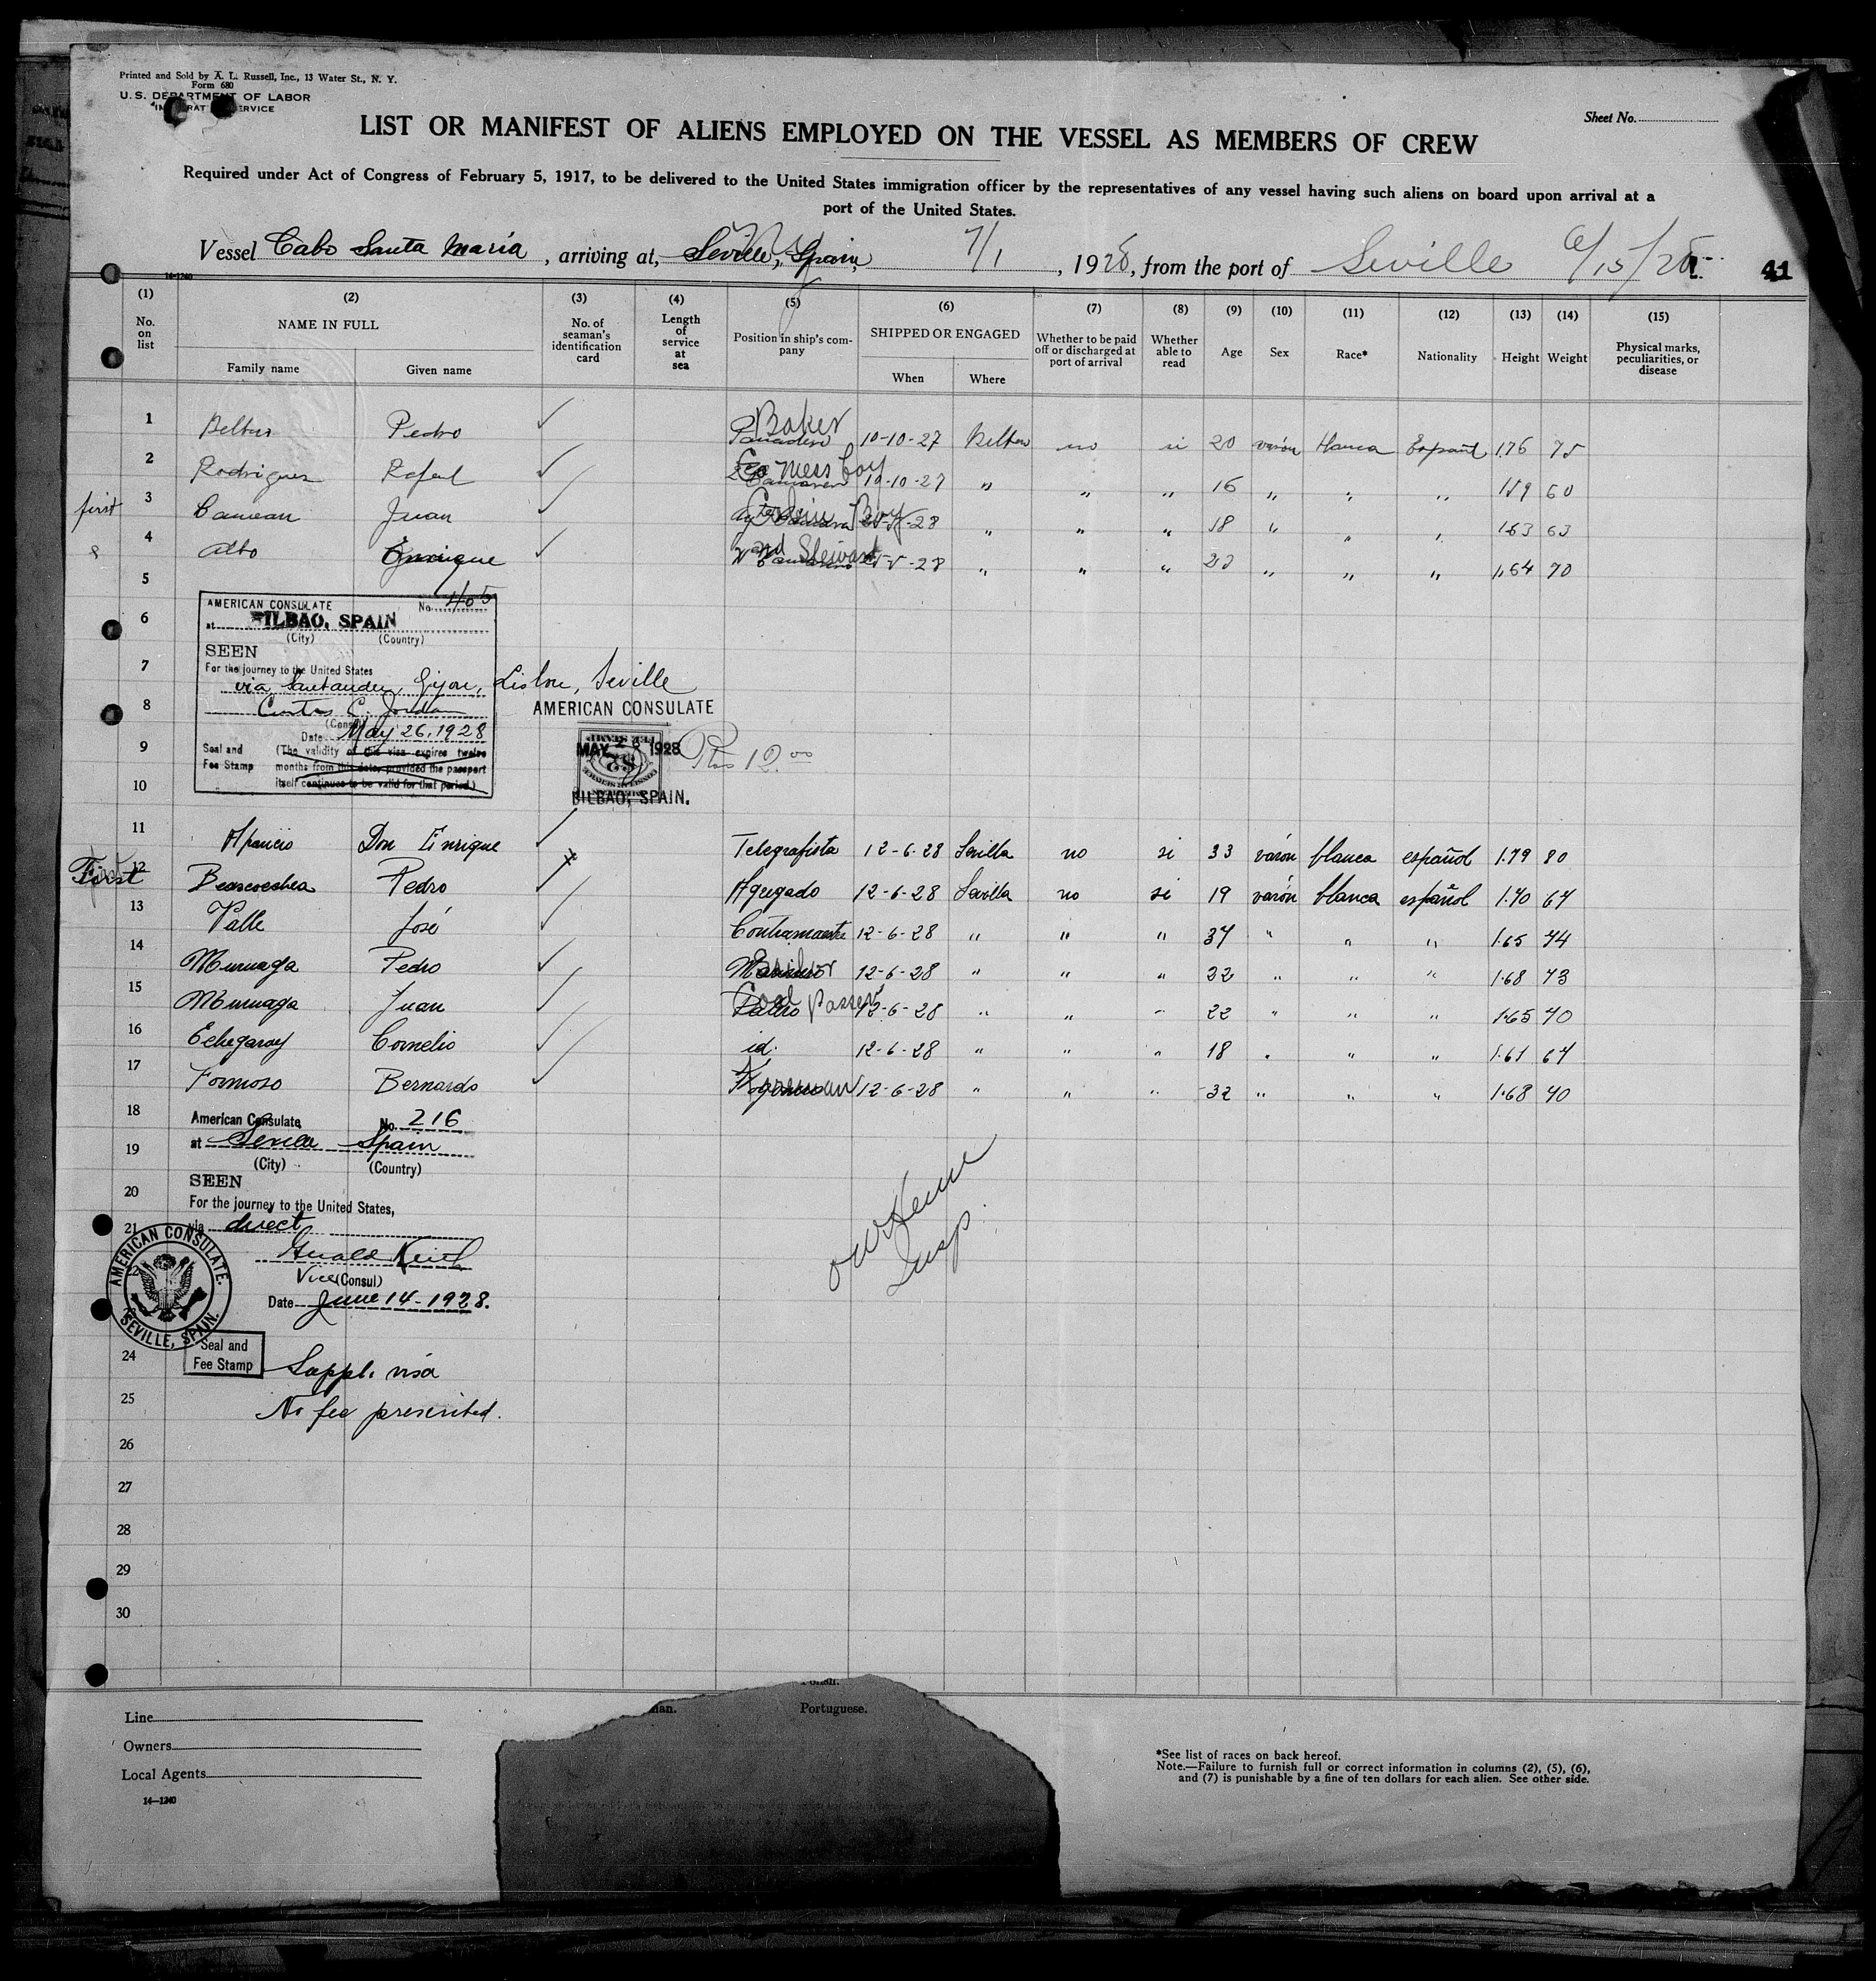 Printed and Sold by A. L. Russell, Inc., 13 Water St., N. Y.
Form 680
U. S. DEPARTMENT OF LABOR
Sheet No.
LIST OR MANIFEST OF ALIENS EMPLOYED ON THE VESSEL AS MEMBERS OF CREW
Required under Act of Congress of February 5, 1917, to be delivered to the United States immigration officer by the representatives of any vessel having such aliens on board upon arrival at a
port of the United States.
Vessel Cabo Santa Maria, arriving at, Seville, Spain, 7/1, 1928, from the port of Seville 6/15/28
41
14-1240
(1) (2) (3) (4) (5) (6) (7) (8) (9) (10) (11) (12) (13) (14) (15)
No. on list
NAME IN FULL
Family name Given name
No. of seaman's identification card
Length of service at sea
Position in ship's company
SHIPPED OR ENGAGED
When Where
Whether to be paid off or discharged at port of arrival
Whether able to read
Age Sex Race* Nationality Height Weight
Physical marks, peculiarities, or disease
1 Pedro ✓ Baker Panadero 10-10-27 Bilbao no si 20 varón blanca Español 1.76 75
2 Rodriguez Rafael ✓ mess boy 10-10-27 " " " 16 " " " 1.59 60
first 3 Juan ✓ Boy -28 " " " 18 " " " 1.63 63
4 Albo Enrique ✓ 2nd Steward -28 " " " " " " 1.64 70
5
6
7
8
9
10
AMERICAN CONSULATE No. 405
at BILBAO, SPAIN
(City) (Country)
SEEN
For the journey to the United States
via Santander, Gijon, Lisbon, Seville
Curtis C. Jordan
(Consul)
Date May 26, 1928
Seal and Fee Stamp
(The validity of this visa expires twelve
months from this date, provided the passport
itself continues to be valid for that period.)
AMERICAN CONSULATE
MAY 26 1928
BILBAO, SPAIN.
$2
12.00
11 Aparicio Don Enrique ✓ Telegrafista 12-6-28 Sevilla no si 33 varón blanca español 1.79 80
First 12 Beascoechea Pedro ✓ Agregado 12-6-28 Sevilla no si 19 varón blanca español 1.70 67
13 Valle José ✓ Contramaestre 12-6-28 " " " 37 " " " 1.65 74
14 Muruaga Pedro ✓ Marinero Sailor 12-6-28 " " " 32 " " " 1.68 73
15 Muruaga Juan ✓ Coal Passer 12-6-28 " " " 22 " " " 1.65 70
16 Echegaray Cornelio ✓ id. 12-6-28 " " " 18 " " " 1.61 67
17 Formoso Bernardo ✓ Fogonero Fireman 12-6-28 " " " 32 " " " 1.68 70
18
19
20
21
American Consulate No. 216
at Sevilla Spain
(City) (Country)
SEEN
For the journey to the United States,
via direct
Gerald Keith
Vice (Consul)
Date June 14 - 1928.
AMERICAN CONSULATE. SEVILLE, SPAIN.
Seal and
Fee Stamp
Suppl. visa
No fee prescribed.
Insp.
24
25
26
27
28
29
30
Polish.
Portuguese.
Line
Owners
Local Agents
14-1240
*See list of races on back hereof.
Note.—Failure to furnish full or correct information in columns (2), (5), (6),
and (7) is punishable by a fine of ten dollars for each alien. See other side.